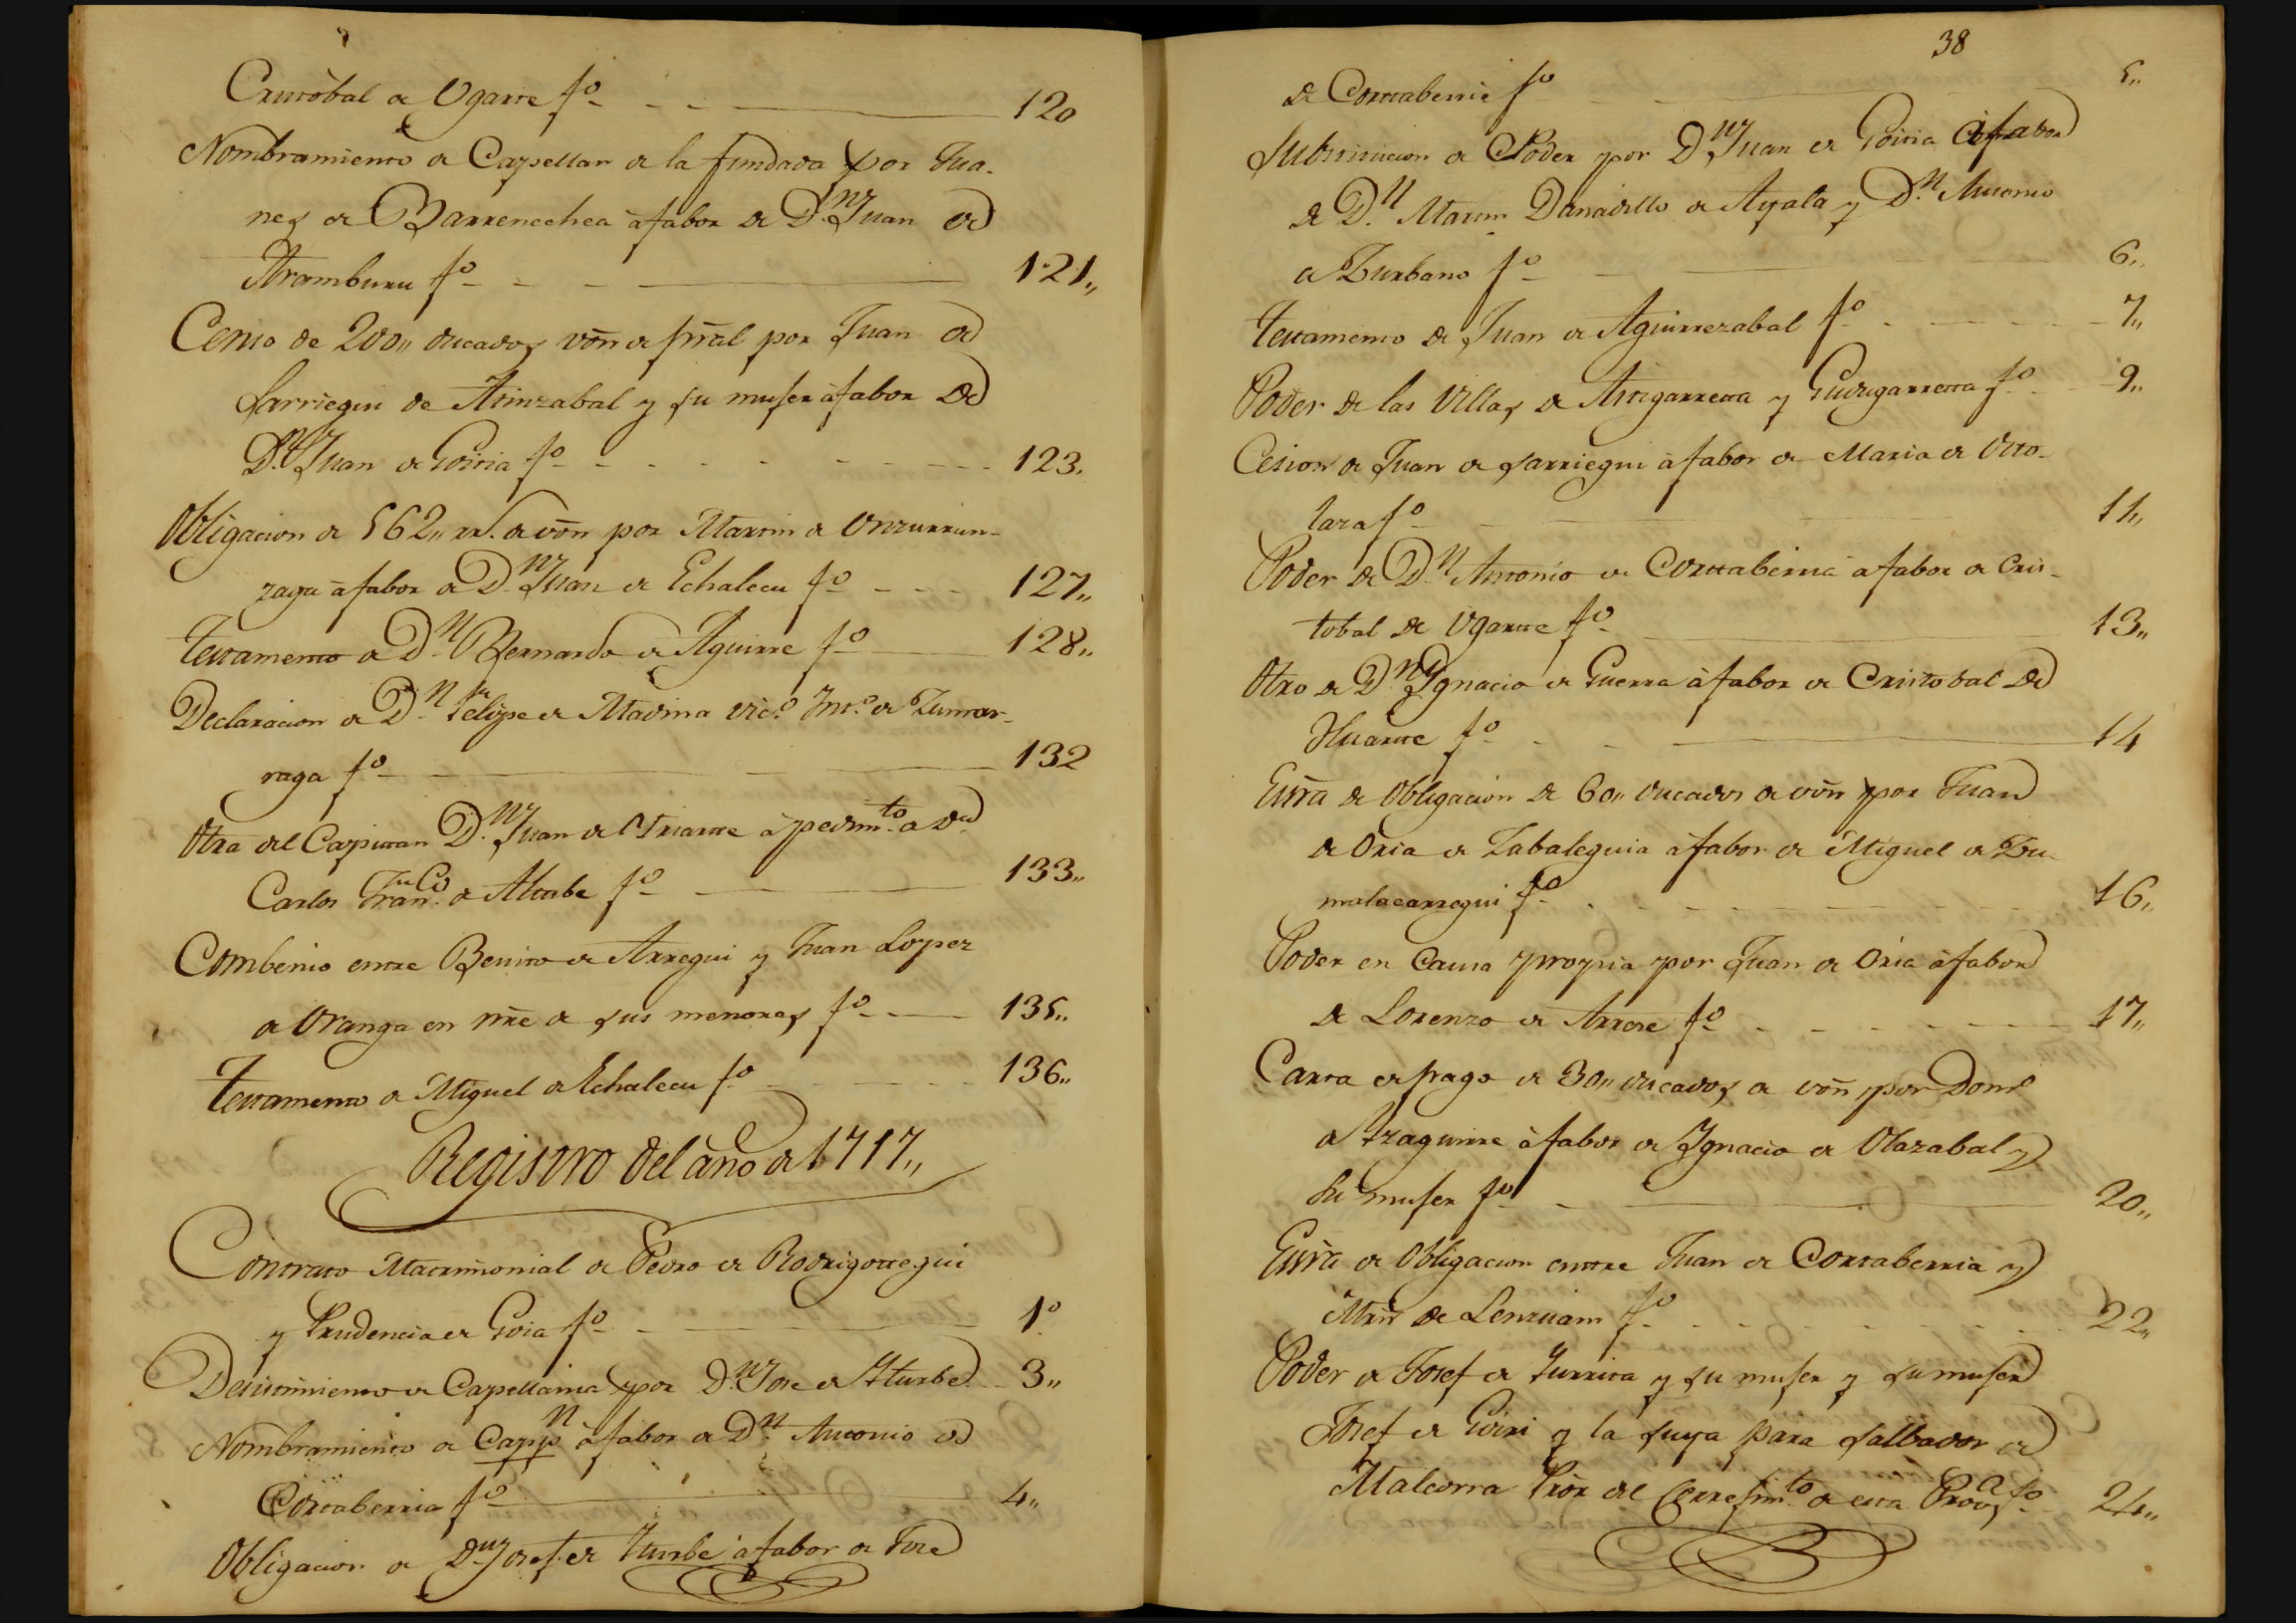 Cristobal de Ugarte fº 120
Nombramiento de Capellan de la fundada por Jua-
nes de Barrenechea à fabor de Dn Juan de
Aramburu fº 121,,
Censo de 200,, ducados von de prāl por Juan de
Larriegui de Atinzabal y su muger à fabor de
Dn Juan de Goiria fº 123.
Obligacion de 562,, rr.s de von por Martin de Unzurrun-
zaga à fabor de Dn Juan de Echalecu fº 127,,
Testamento de Dn Bernardo de Aguirre fº 128,,
Declaracion de Dn Felipe de Madina vic.º Int.º de Zumar-
raga fº 132
Otra del Capitan Dn Juan de Yriarte à pedim.to de Dn
Carlos Fran.co de Altube fº 133,,
Combenio entre Benito de Arregui y Juan Lopez
de Uranga en nrē de sus menores fº 135,,
Testamento de Miguel de Echalecu fº 136,,
Registro del año de 1717,,
Contrato Matrimonial de Pedro de Rodrigotegui
y Prudencia de Goia fº 1º
Desistimiento de Capellania por Dn Jose de Yturbe 3,,
Nombramiento de Capp.n à fabor de Dn Antonio de
Cortaberria fº 4,,
Obligacion de Dn Josef de Yturbe à fabor de Jose
38
de Cortaberria fº 5,,
Substitucion de Poder por Dn Juan de Goiria à fabor
de Dn Martin Danadillo de Ayala y Dn Antonio
de Zurbano fº 6,,
Testamento de Juan de Aguirrezabal fº 7,,
Poder de las Villas de Astigarreta y Gudugarreta fº 9,,
Cesion de Juan de Larriegui à fabor de Maria de Oto-
laza fº 11,,
Poder de Dn Antonio de Cortaberria à fabor de Cris-
tobal de Ugarte fº 13,,
Otro de Dn Ygnacio de Guerra à fabor de Cristobal de
Huarte fº 14
Esrā de Obligacion de 60,, ducados de von por Juan
de Oria de Zabaleguia à fabor de Miguel de Zu-
malacarregui fº 16,,
Poder en Causa propria por Juan de Oria à fabor
de Lorenzo de Arrese fº 17,,
Carta de pago de 30,, ducados de von por Dom.º
de Yzaguirre à fabor de Ygnacio de Olazabal y
su muger fº 20,,
Esrā de Obligacion entre Juan de Cortaberria y
Mrn de fº 22,,
Poder de Josef de Yurrita y su muger y su muger
Josef de Goiri y la suya para Salbador de
Malcorra Prōr del Corregim.to de esta Prov.a fº 24,,